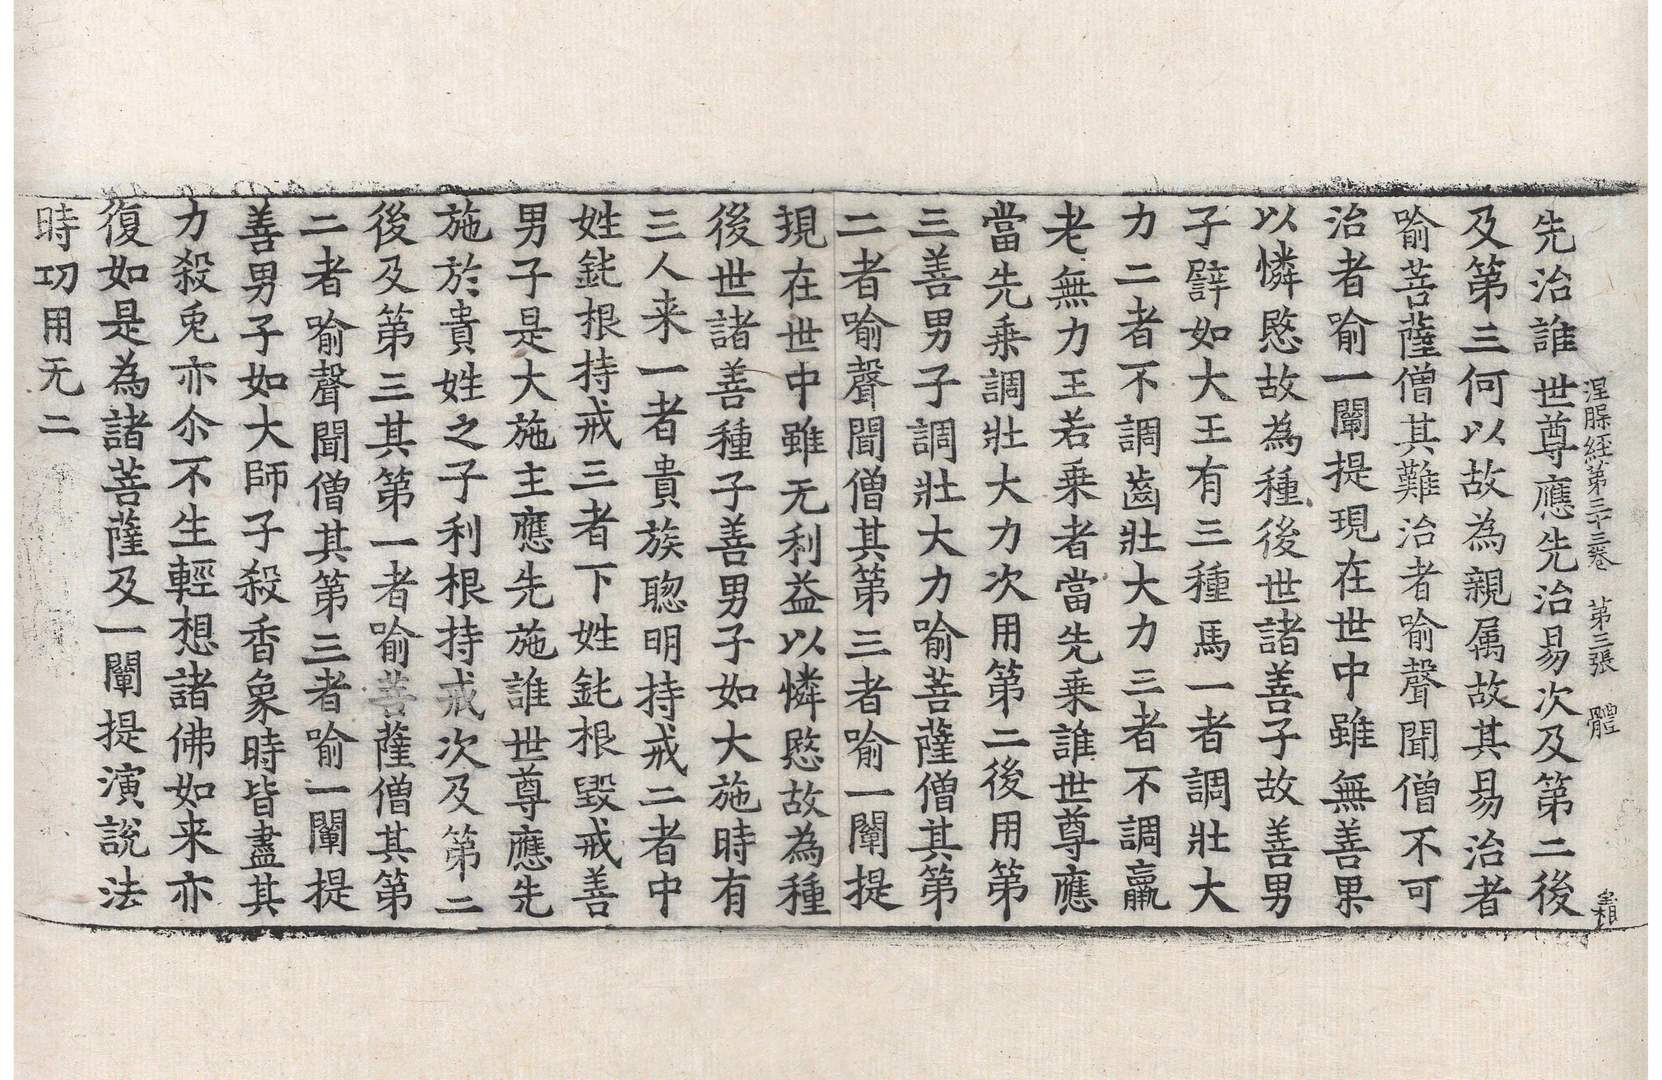 涅槃經第三十三卷 第三張 體
先治誰 世尊應先治易次及第二後
及第三何以故為親属故其易治者
喻菩薩僧其難治者喻聲聞僧不可
治者喻一闡提現在世中雖無善果
以憐愍故為種後世諸善子故善男
子譬如大王有三種馬一者調壯大
力二者不調齒壯大力三者不調羸
老無力王若乗者當先乗誰世尊應
當先乗調壯大力次用第二後用第
三善男子調壯大力喻菩薩僧其第
二者喻聲聞僧其第三者喻一闡提
現在世中雖无利益以憐愍故為種
後世諸善種子善男子如大施時有
三人来一者貴族聦明持戒二者中
姓鈍根持戒三者下姓鈍根毀戒善
男子是大施主應先施誰世尊應先
施於貴姓之子利根持戒次及第二
後及第三其第一者喻菩薩僧其第
二者喻聲聞僧其第三者喻一闡提
善男子如大師子殺香象時皆盡其
力殺兎亦尒不生輕想諸佛如来亦
復如是為諸菩薩及一闡提演說法
時功用无二